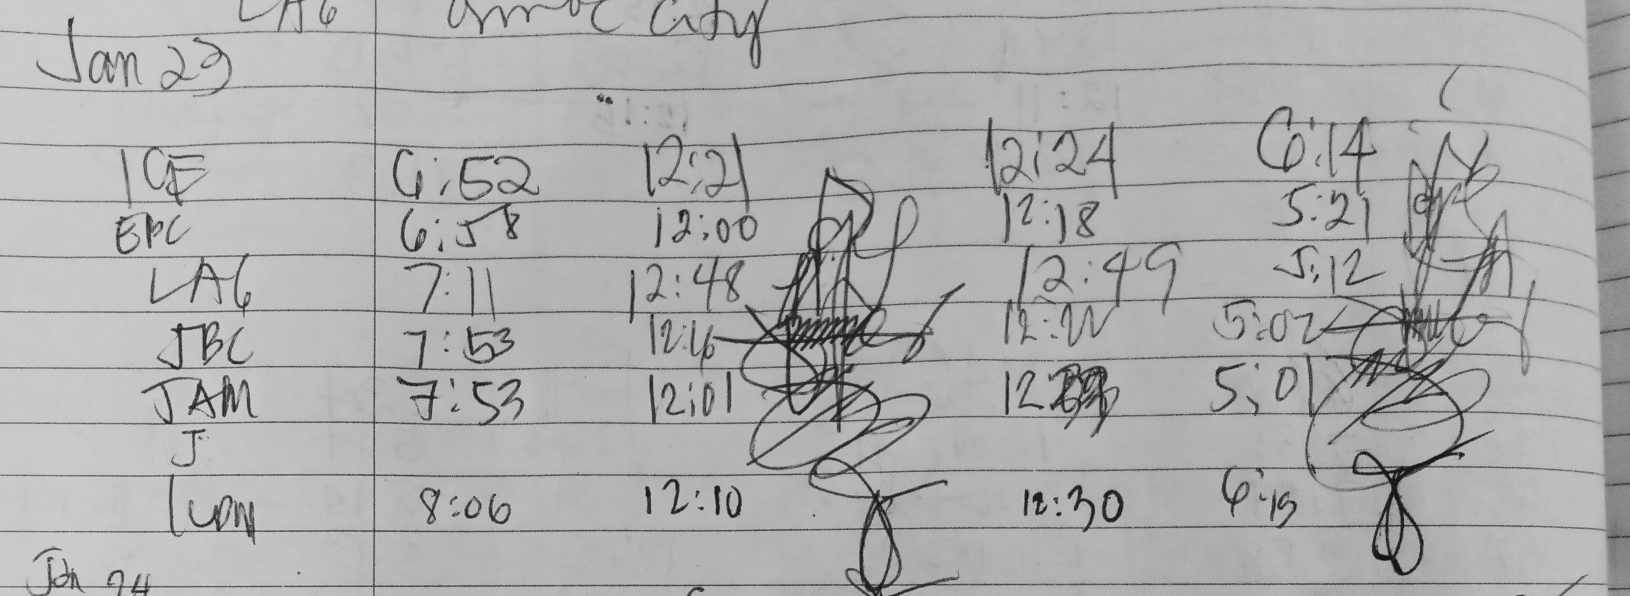 LAG Ormoc City
Jan 23
ICE 6:52 12:21 12:24 6:14
EBC 6:58 12:00 12:18 5:21
LAG 7:11 12:48 12:49 5:12
JBC 7:53 12:16 5:02
JAM 7:53 12:01 5:01
J
8:06 12:10 12:30 6:15
Jan 24